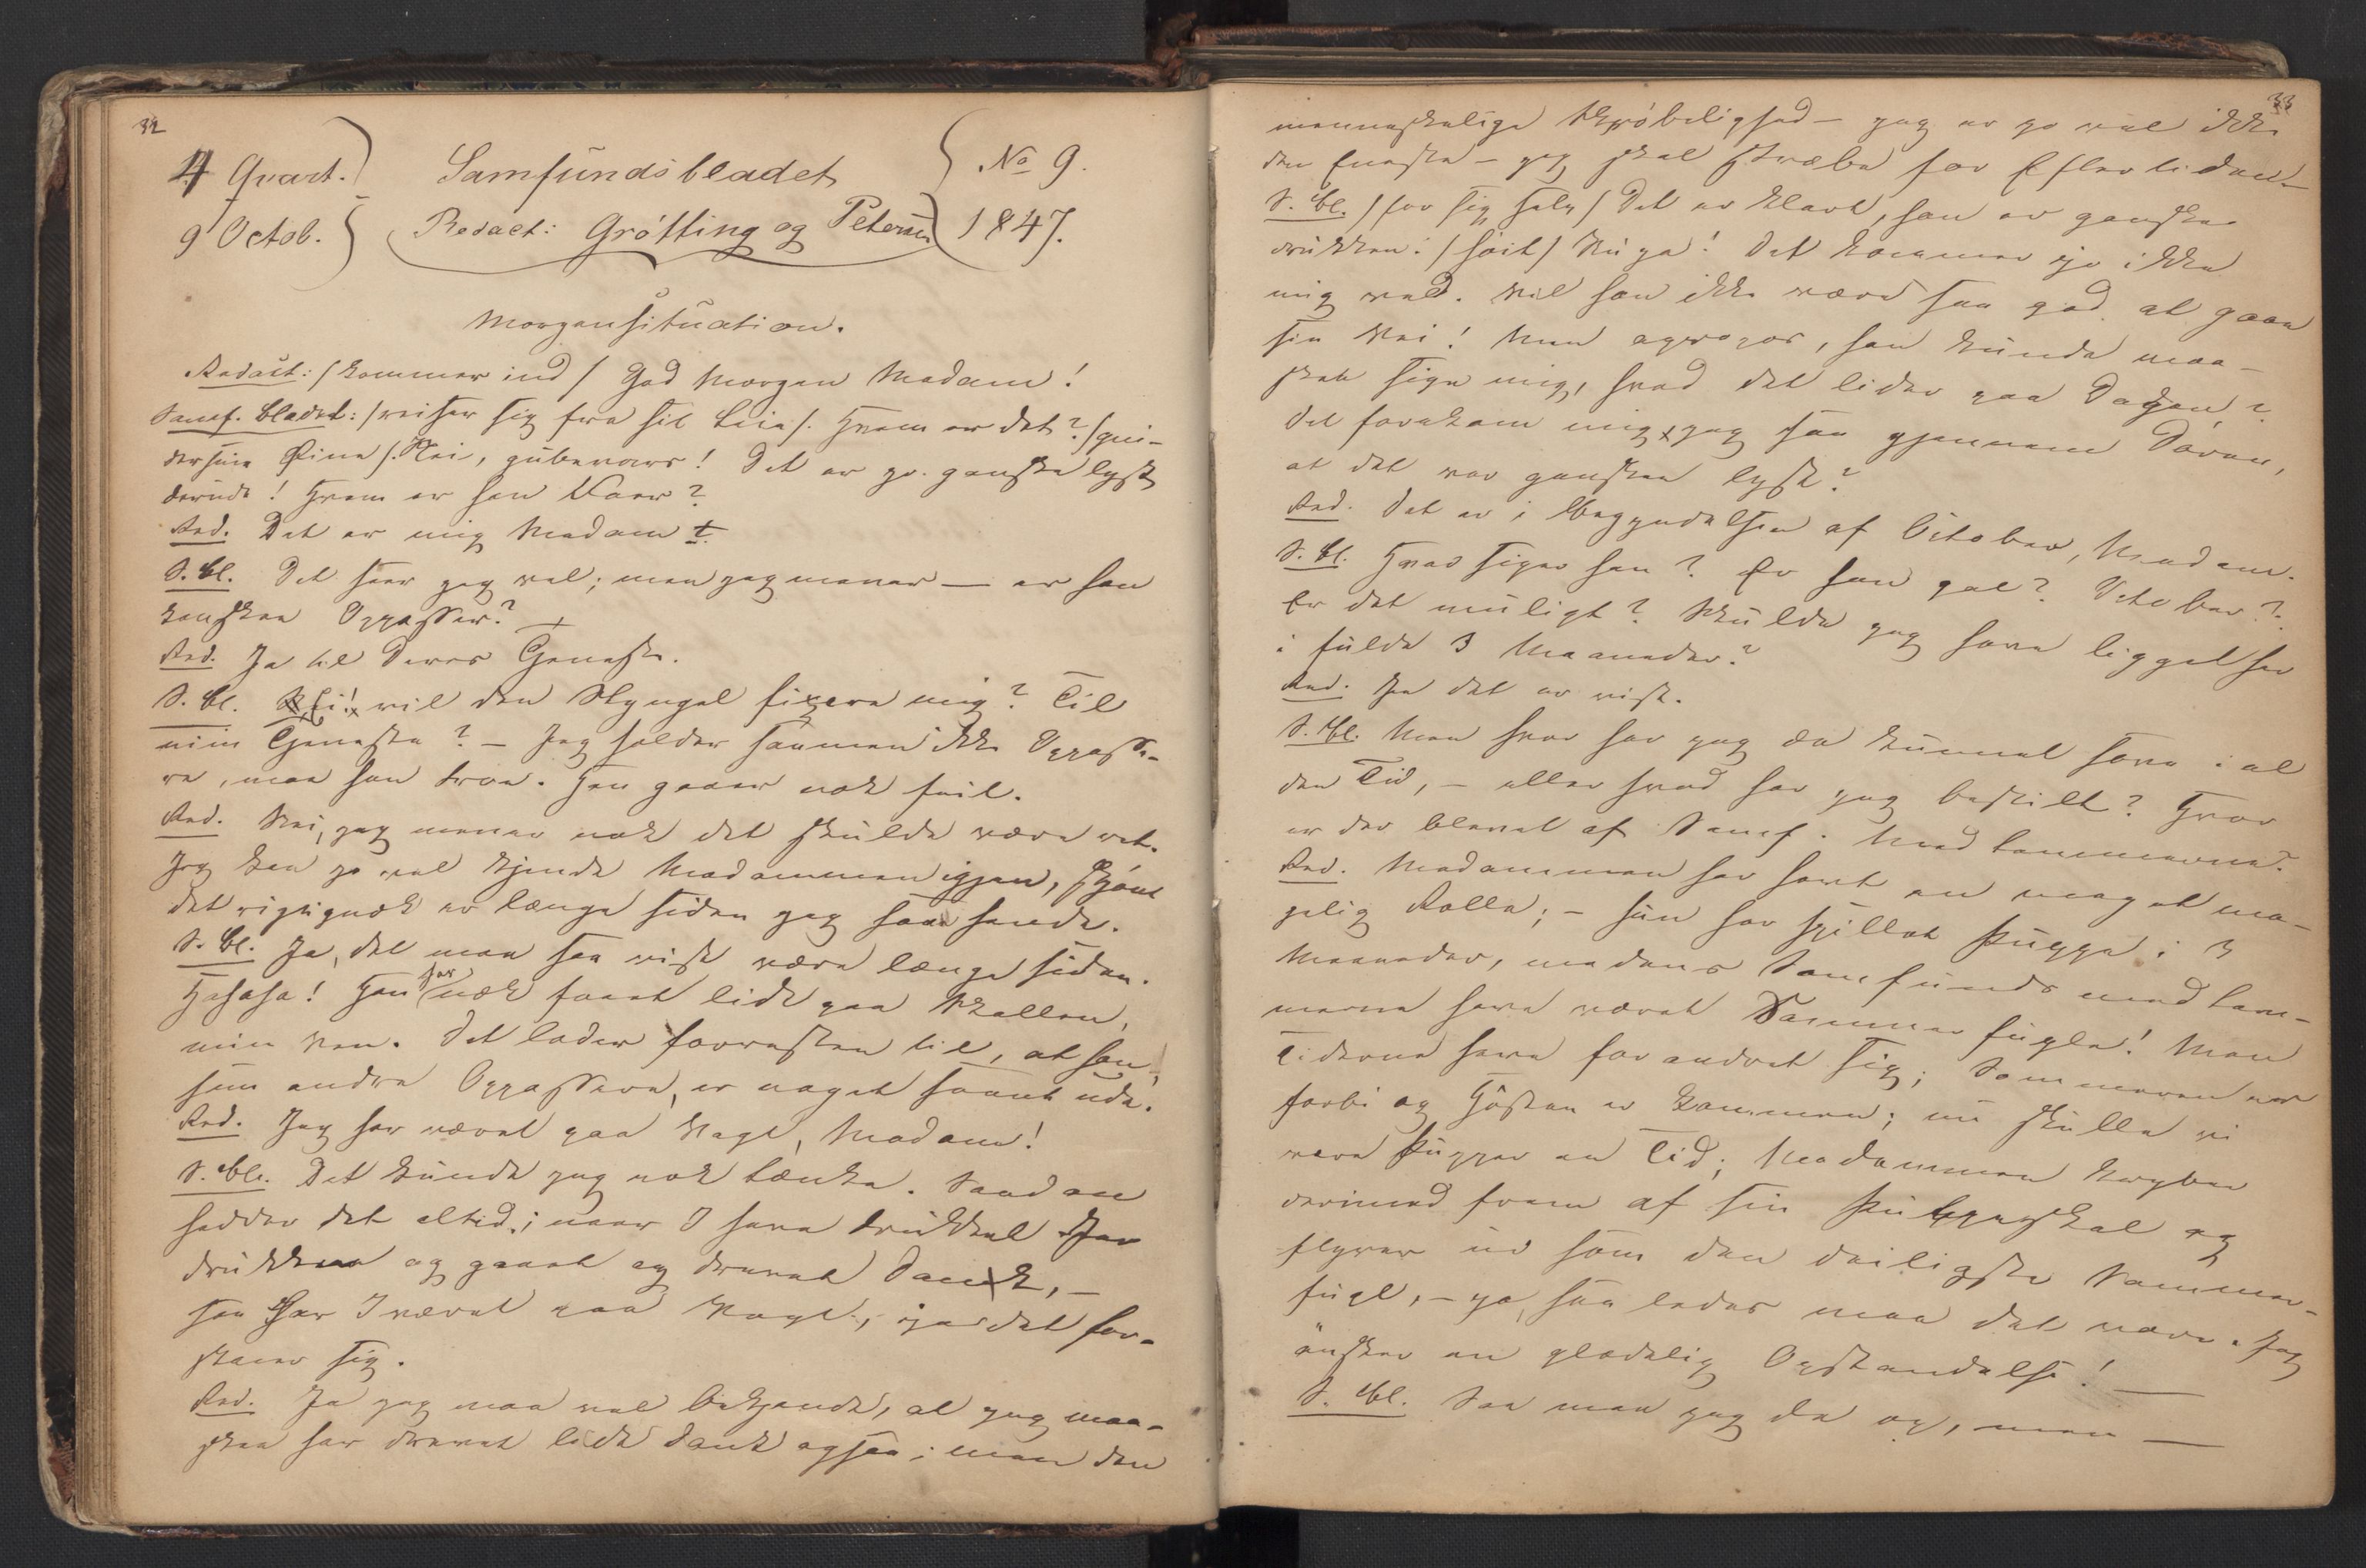 32
4 Qvart.
9 Octob.
Samfundsbladet
Redact: Grøtting og Petersen
No 9.
1847.
Morgensituation.
Redact: /kommer ind/ God Morgen Madam!
Samf. bladet: /reiser sig fra sit Leie/. Hvem er det? /gni-
der sine Øine/. Nei, gubevares! Det er jo ganske lyst
derude! Hvem er han Faer?
Red. Det er mig Madam!
S. bl. Det hører jeg vel; men jeg mener — er han
kanskee Oppasser?
Red. Ja til Deres Tjeneste.
S. bl. Ei! vil den Slyngel fixere mig? Til
min Tjeneste? – Jeg holder saamen ikke Oppasse-
re, maa han troe. Han gaaer nok feil.
Red. Nei, jeg mener nok det skulde være ret.
Jeg kan jo vel kjende Madammen igjen, skjønt
det rigtignok er længe siden jeg saae hende.
S. bl. Ja, det maa saa vist være længe siden.
Hahaha! Han har nok faaet lidt paa Skallen,
min Ven. Det lader forresten til, at han,
som andre Oppassere, er noget saent ude.
Red. Jeg har været paa Vagt, Madam!
S. bl. Det kunde jeg nok tænke. Saadan
hedder det altid; naar I have drukket Jer
drukken og gaaet og drevet Dank, –
saa har I været paa Vagt; ja det for-
staaer sig.
Red. Ja jeg maa vel bekjende, at jeg maa-
skee har drevet lidt Dank ogsaa; men den
33
menneskelige Skrøbelighed – jeg er jo vel ikke
den Eneste – jeg skal stræbe for Eftertiden –
S. bl. /for sig selv/ Det er klart, han er ganske
drukken. /høit/ Nu ja! Det kommer jo ikke
mig ved. Vil han ikke være saa god at gaae
sin Vei! Men apropos, han kunde maa-
skee sige mig, hvad det lider paa Dagen?
Det forekom mig, jeg saa gjennem Døren,
at det var ganske lyst?
Red. Det er i Begyndelsen af October, Madam.
S. bl. Hvad siger han? Er han gal? October?
Er det muligt? Skulde jeg have ligget her
i fulde 3 Maaneder?
Red. Ja det er vist.
S. bl. Men hvor har jeg da kunnet sove i al
den Tid, – eller hvad har jeg bestilt? Hvor
er der blevet af Samf. Medlemmerne?
Red. Madammen har havt en meget ma-
gelig Rolle; – hun har spillet Puppe i 3
Maaneder, medens Samfundsmedlem-
merne have været Sommerfugle! Men
Tiderne have forandret sig; Sommeren er
forbi og Høsten er kommen; nu skulle vi
være Pupper en Tid; Madammen kryber
derimod frem af sin Puppeskal og
flyver ud som den deiligste Sommer-
fugl, – ja, saaledes maa det være. Jeg
ønsker en glædelig Opstandelse! —
S. bl. Saa maa jeg da op, men —